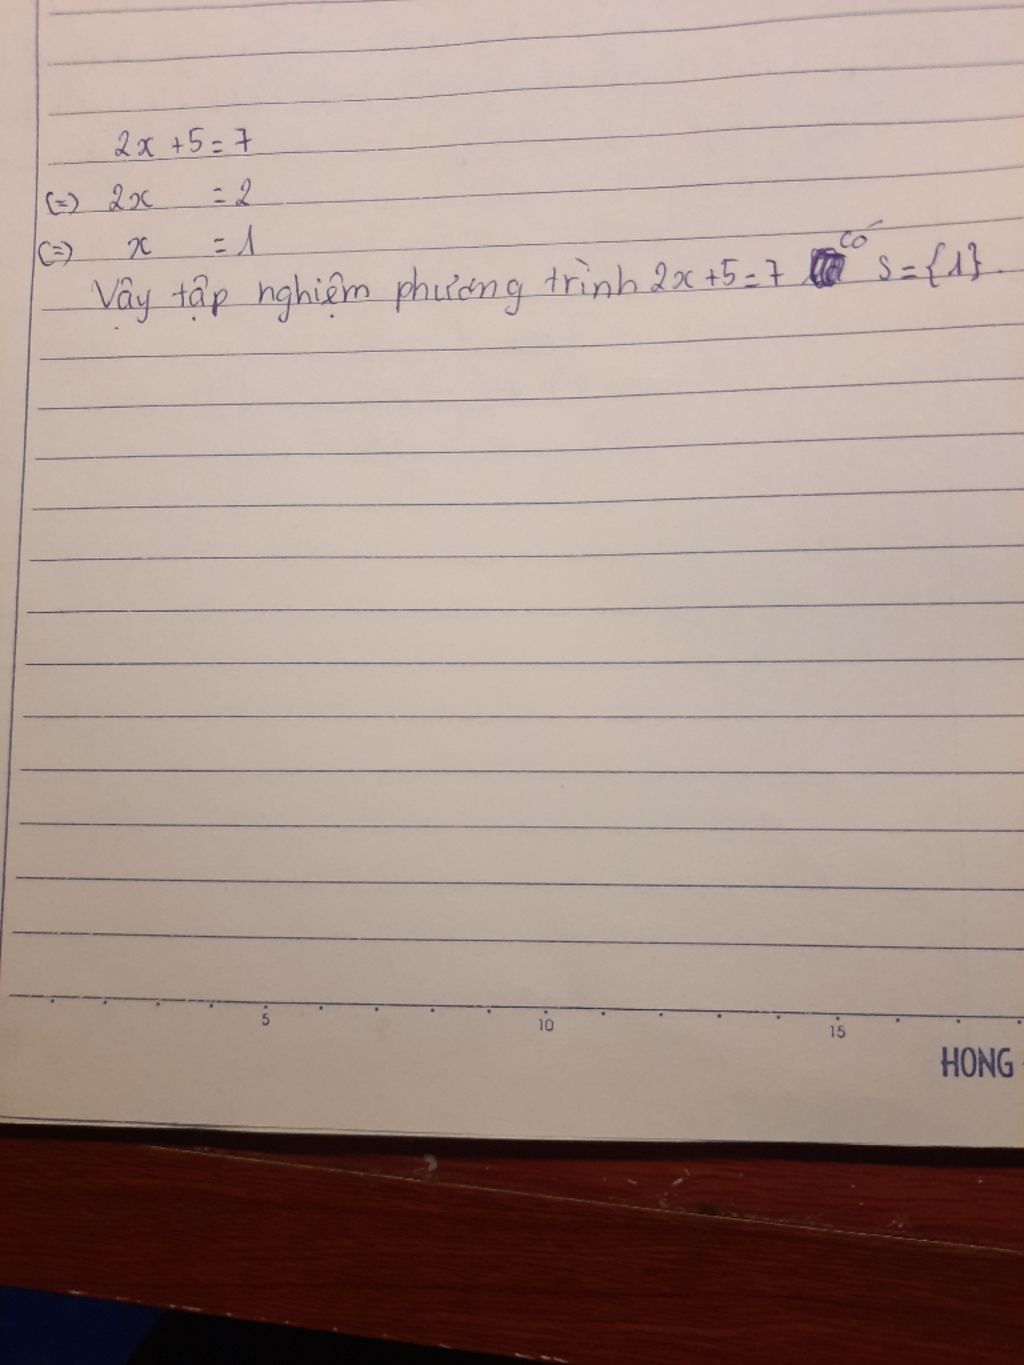 2x + 5 = 7
(=) 2x = 2
(=) x = 1
Vậy tập nghiệm phương trình 2x + 5 = 7 có S = {1}.
5 10 15
HONG